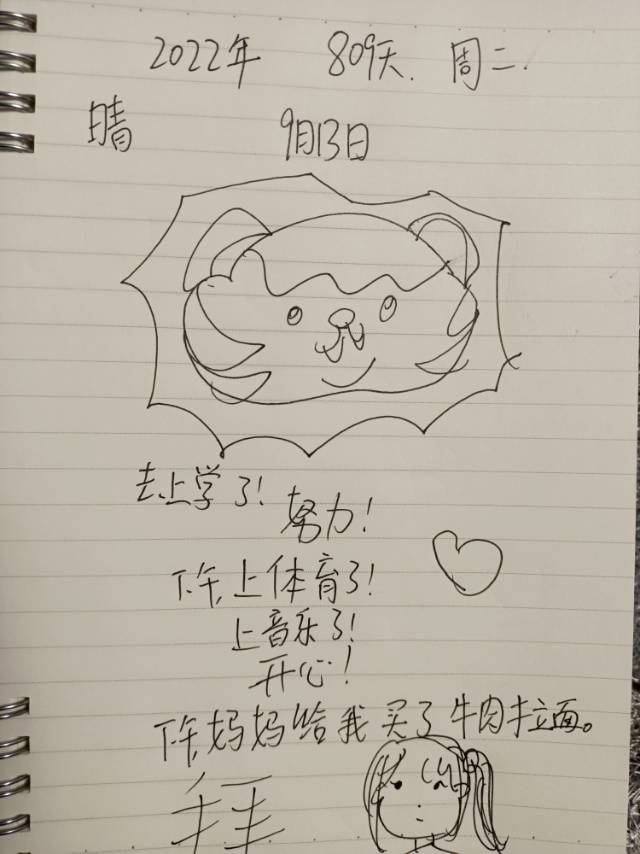 2022年 809天. 周二.
晴 9月13日
去上学了!
努力!
下午,上体育了!
上音乐了!
开心!
下午,妈妈给我买了牛肉拉面。
拜